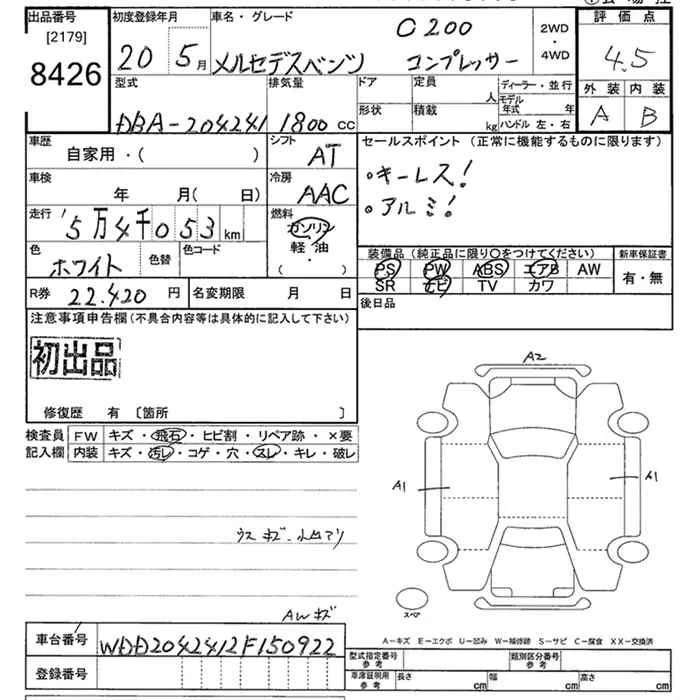 出品番号
[2179]
8426
初度登録年月
20 5月
車名・グレード
C200
メルセデスベンツ コンプレッサー
2WD
・
4WD
評価点
4.5
外装 内装
A B
型式
DBA-204241
排気量
1800 cc
ドア
定員
人
形状
積載
kg
ディーラー・並行
モデル年式 年
ハンドル 左・右
車歴
自家用・( )
シフト
AT
車検
年 月( 日)
冷房
AAC
走行
'5万4千053km
燃料
ガソリン
軽・油
( ・ )
色
ホワイト
色替
色コード
R券 22.420 円
名変期限 月 日
セールスポイント (正常に機能するものに限ります)
・キーレス!
・アルミ!
装備品 (純正品に限り○をつけてください)
PS PW ABS エアB AW
SR ナビ TV カワ
新車保証書
有・無
後日品
注意事項申告欄(不具合内容等は具体的に記入して下さい)
初出品
修復歴 有 〔箇所 〕
検査員記入欄
FW キズ・飛石・ヒビ割・リペア跡・×要
内装 キズ・汚レ・コゲ・穴・スレ・キレ・破レ
ウスキズ・小凹アリ
AWキズ
A2
A1
A1
スペア
A-キズ E-エクボ U-凹み W-補修跡 S-サビ C-腐食 XX-交換済
車台番号 WDD2042412F150922
登録番号
型式指定番号 参考
類別区分番号 参考
車庫証明用 参考 長さ cm 幅 cm 高さ cm